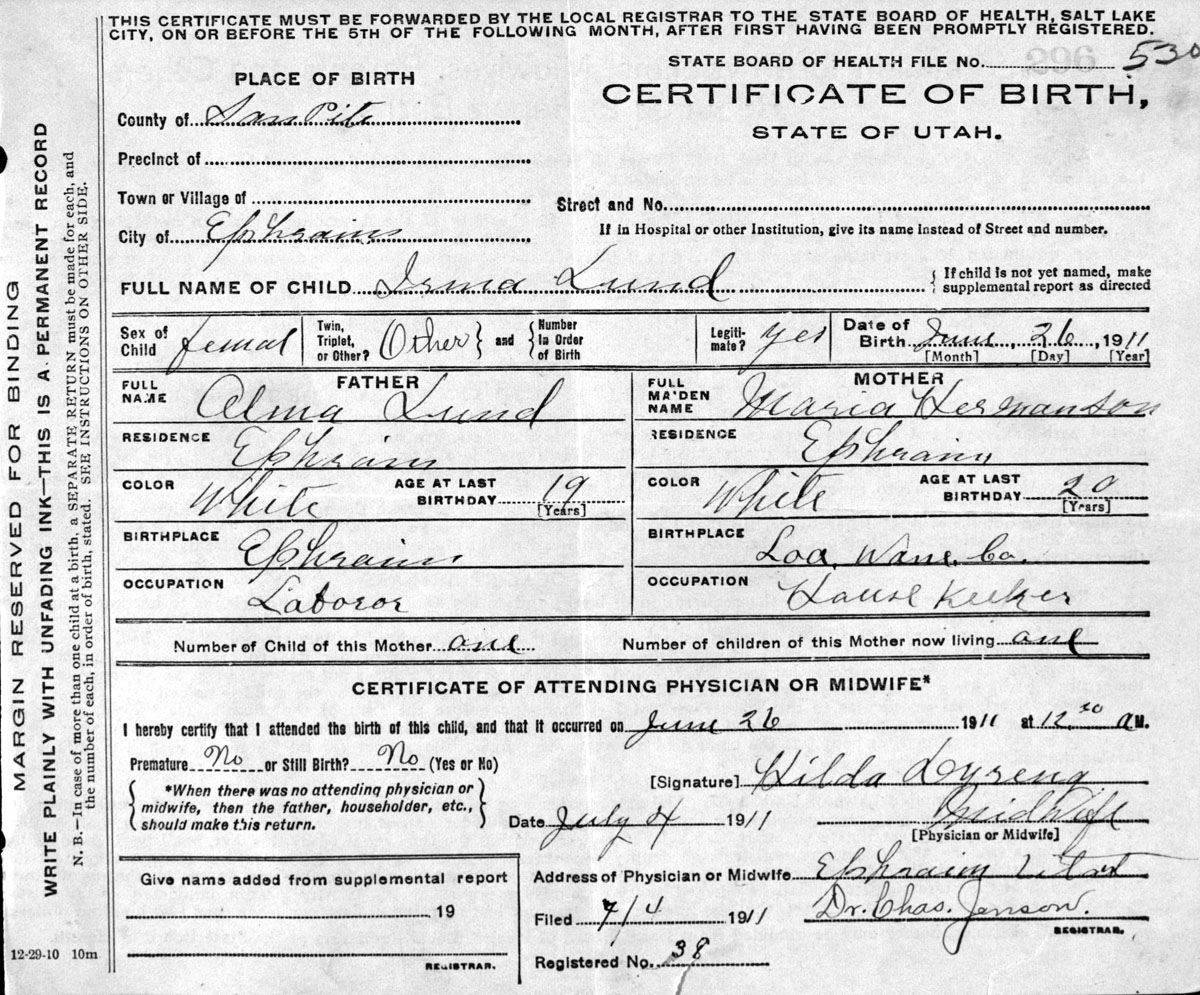 THIS CERTIFICATE MUST BE FORWARDED BY THE LOCAL REGISTRAR TO THE STATE BOARD OF HEALTH, SALT LAKE
CITY, ON OR BEFORE THE 5TH OF THE FOLLOWING MONTH, AFTER FIRST HAVING BEEN PROMPTLY REGISTERED.
MARGIN RESERVED FOR BINDING
WRITE PLAINLY WITH UNFADING INK—THIS IS A PERMANENT RECORD
N. B.—In case of more than one child at a birth, a SEPARATE RETURN must be made for each, and
the number of each, in order of birth, stated. SEE INSTRUCTIONS ON OTHER SIDE.
STATE BOARD OF HEALTH FILE No. 530
PLACE OF BIRTH
CERTIFICATE OF BIRTH,
STATE OF UTAH.
County of San Pete
Precinct of
Town or Village of
Street and No.
City of Ephraim
If in Hospital or other Institution, give its name instead of Street and number.
FULL NAME OF CHILD Irma Lund
{ If child is not yet named, make
supplemental report as directed
Sex of Child femal
Twin, Triplet, or Other? Other } and { Number In Order of Birth
Legiti-mate? yes
Date of Birth June, 26, 1911
[Month] [Day] [Year]
FATHER
FULL NAME Alma Lund
MOTHER
FULL MAIDEN NAME Maria Hermanson
RESIDENCE Ephraim
RESIDENCE Ephraim
COLOR White AGE AT LAST BIRTHDAY 19 [Years]
COLOR White AGE AT LAST BIRTHDAY 20 [Years]
BIRTHPLACE Ephraim
BIRTHPLACE Loa, Wane, Co.
OCCUPATION Laboror
OCCUPATION House Keeker
Number of Child of this Mother one
Number of children of this Mother now living one
CERTIFICATE OF ATTENDING PHYSICIAN OR MIDWIFE*
I hereby certify that I attended the birth of this child, and that it occurred on June 26 1911 at 12 30 a M.
Premature No or Still Birth? No (Yes or No)
[Signature] Hilda Dyreng
{ *When there was no attending physician or
midwife, then the father, householder, etc.,
should make this return. }
Date July 4 1911 Midwife
[Physician or Midwife]
Give name added from supplemental report
19
REGISTRAR.
Address of Physician or Midwife Ephraim Utah
Filed 7/4 1911 Dr. Chas. Jenson.
REGISTRAR.
Registered No. 38
12-29-10 10m